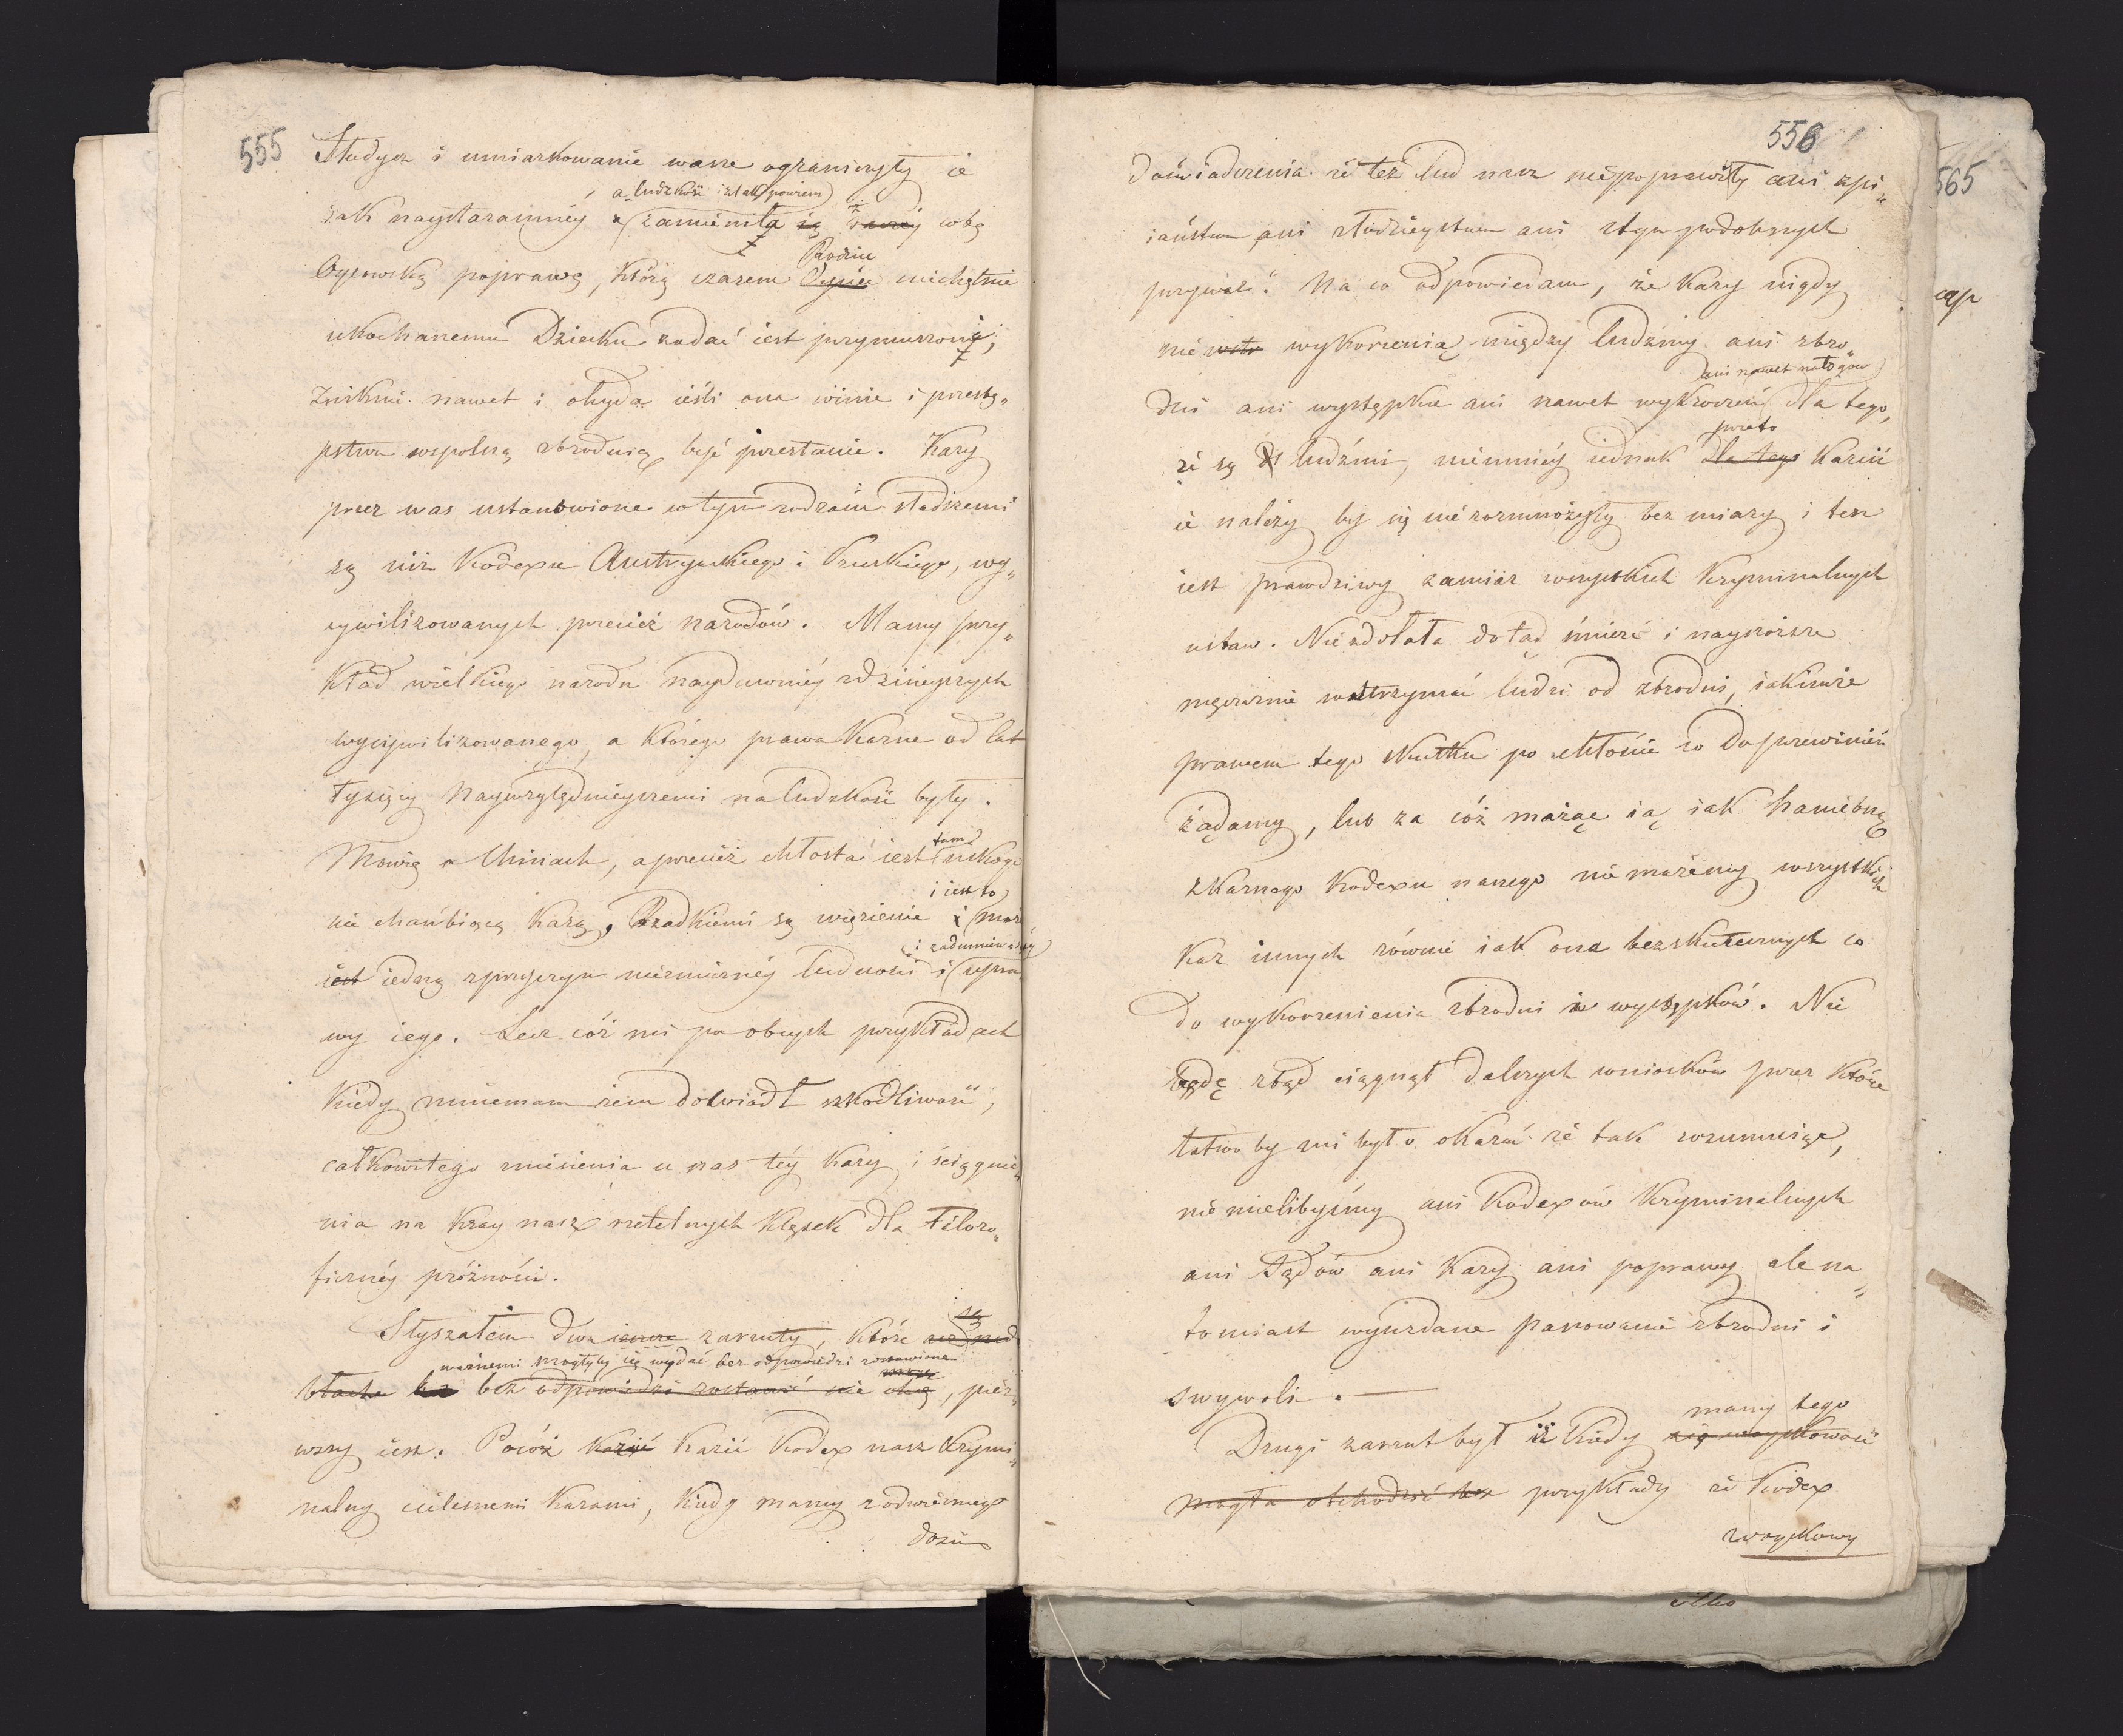 555
Słodycz i umiarkowanie wasze ograniczyły ie
a ludzkość iż tak powiem
iak naystaranniéy zamieniła ią w tę
Rodzic
Oycowską poprawę, którą czasem Oyciec niechętnie
ukochanemu Dziecku zadać iest przymuszonym;
Zniknie nawet i ohyda ieśli ona winie i przestę„
pstwu wspólną zbrodnią być przestanie. Kary
przez was ustanowione w tym rodzaiu słodszemi
są niż Kodexu Austryackiego i Pruskiego, wy„
cywilizowanych przecież narodów. Mamy przy„
kład wielkiego narodu naydawniéy z dzisieyszych
wycywilizowanego, a którego prawa karne od lat
tysięcy naywzględnieyszemi na ludzkość były.
tam
Mowię o Chinach, a przecież chłosta iest nikogo
i iest to
nie chańbiącą karą, Rzadkiemi są więzienie i może
i zadumiewaiącéy
iest iedną z przyczyn niezmiernéy ludności i upra
wy iego. Lecz cóż mi po obcych przykładach
kiedy mniemam żem dowiódł szkodliwość,
całkowitego zniesienia u nas téy kary i ściągnie„
nia na kray nasz rzetelnych klęsek dla filozo„
ficznéy próżności.
są
Słyszałem dwa ieszcze zarzuty, które
ważnemi mogłyby się wydać bez odpowiedzi zostawione
mogą
błache bez odpowiedzi zostawić nie chcę, pier„
wszy iest: Pocóż karić kazić Kodex nasz Krymi„
nalny cielesnemi karami, kiedy mamy z odwiecznego
doświ
556
doświadczenia że też lud nasz niepoprawiły ani z pi„
iaństwa ani złodzieystwa ani z tym podobnych
przywar. Na co odpowiadam, że kary nigdy
nie wyko­rzenią między ludźmy ani zbro„
ani nawet nałogów
dni ani występku ani nawet wykroczeń dla tego,
przeto
że są ludźmi, niemniéy iednak dla tego karcić
ie należy by się nierozmnożyły bez miary i ten
iest prawdziwy zamiar wszystkich Kryminalnych
ustaw. Niezdołała dotąd śmierć i naysroższe
męczarnie wstrzymać ludzi od zbrodni, iakimże
prawem tego skutku po chłoście co do przewinień
żądamy, lub za cóż mażąc ią iak haniebną
z karnego Kodexu naszego nie mażemy wszystkich
kar innych równie iak ona bezskutecznych co
do wykorzenienia zbrodni i występków. Nie
będę ztąd ciągnął dalszych wniosków przez które
łatwo by mi było okazać że tak rozumuiąc,
nie mielibyśmy ani Kodexów Kryminalnych
ani Sądów ani kary ani poprawy ale na„
tomiast wyuzdane panowanie zbrodni i
swywoli. —
mamy tego
Drugi zarzut był iż kiedy się woyskowość
mogła obchodzić bez przykłady że Kodex
woyskowy
565